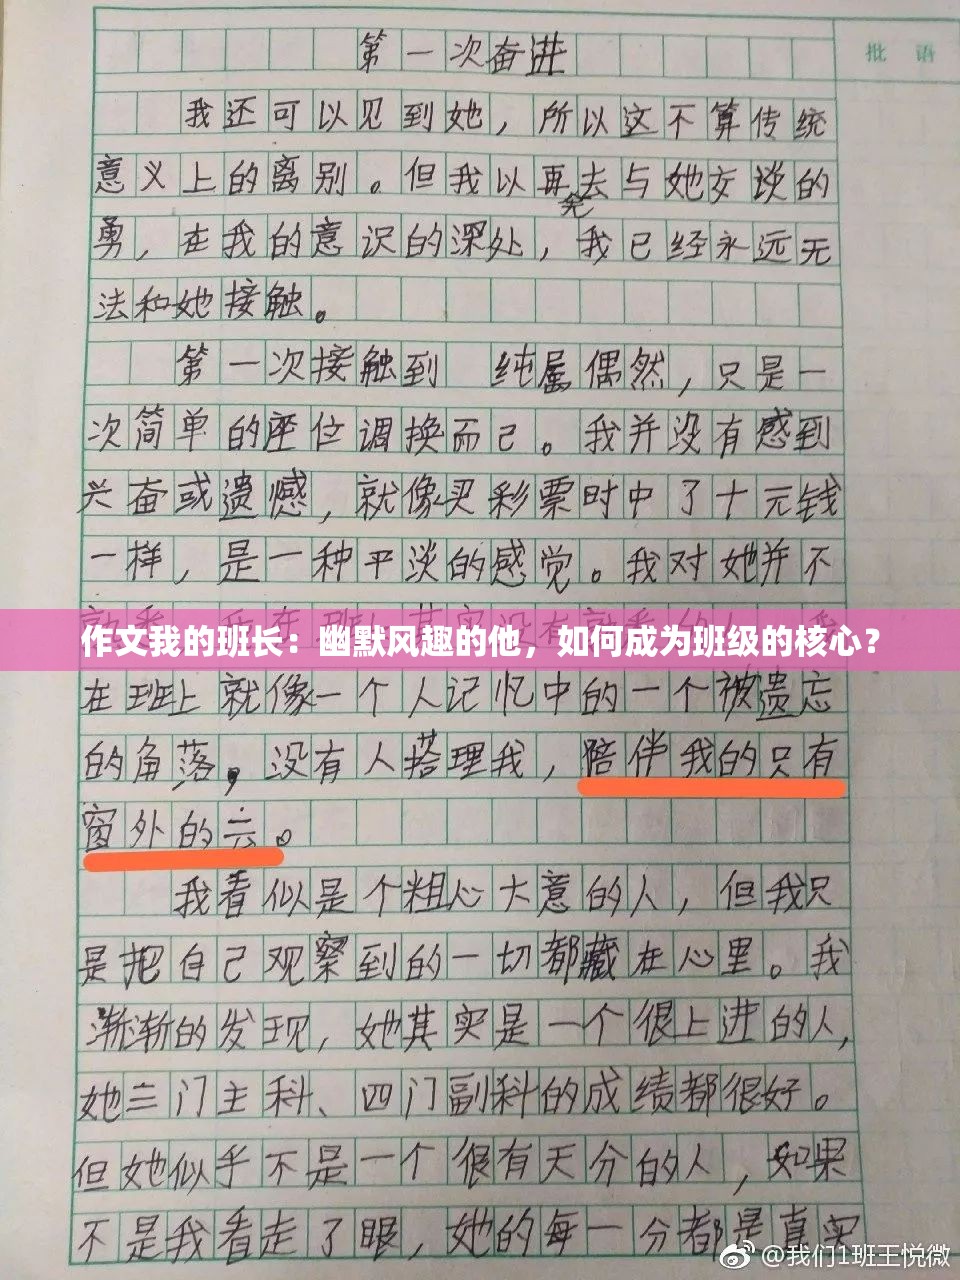 第一次奋进
批 语
我还可以见到她，所以这不算传统
意义上的离别。但我以再去与她交谈的
勇，在我的意识的深处，我已经永远无
法和她接触。
第一次接触到 纯属偶然，只是一
次简单的座位调换而已。我并没有感到
兴奋或遗憾，就像买彩票时中了十元钱
一样，是一种平淡的感觉。我对她并不
作文我的班长：幽默风趣的他，如何成为班级的核心？
在班上就像一个人记忆中的一个被遗忘
的角落，没有人搭理我，陪伴我的只有
窗外的云。
我看似是个粗心大意的人，但我只
是把自己观察到的一切都藏在心里。我
渐渐的发现，她其实是一个很上进的人，
她三门主科、四门副科的成绩都很好。
但她似乎不是一个很有天分的人，如果
不是我看走了眼，她的每一分都是真实
@我们1班王悦微